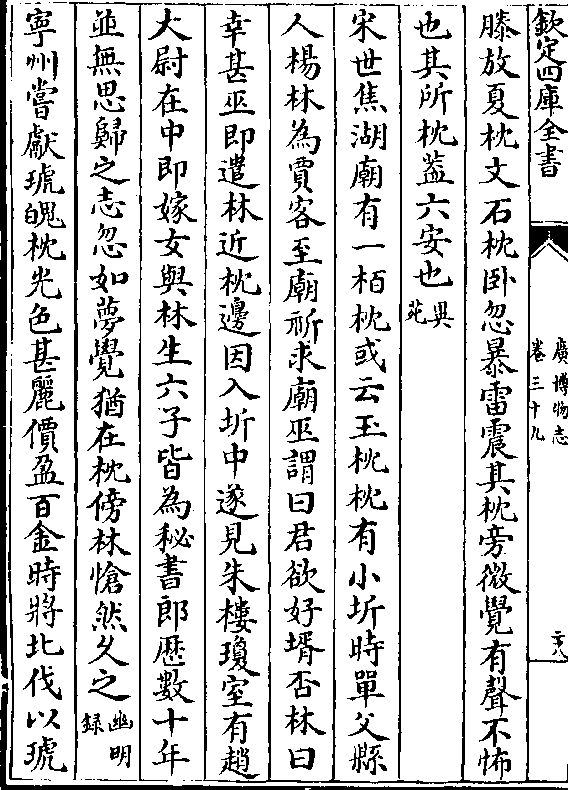 欽定四庫全書
廣博物志
卷三十九
二十八
滕放夏枕文石枕卧忽暴雷震其枕旁微覺有聲不怖
也其所枕葢六安也異苑
宋世焦湖廟有一栢枕或云玉枕枕有小坼時單父縣
人楊林為賈客至廟祈求廟巫謂曰君欲好壻否林曰
幸甚巫即遣林近枕邊因入坼中遂見朱樓瓊室有趙
大尉在中即嫁女與林生六子皆為秘書郎歴數十年
並無思歸之志忽如夢覺猶在枕傍林愴然久之幽明録
寧州嘗獻琥魄枕光色甚麗價盈百金時將北伐以琥